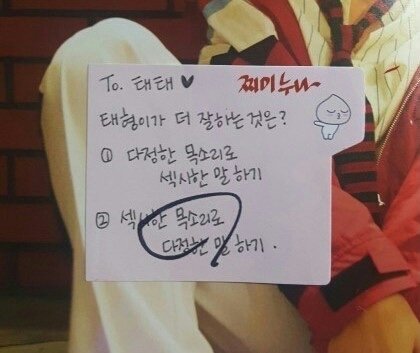 To. 태태 ♥ 찌미누나
태형이가 더 잘하는 것은?
① 다정한 목소리로
섹시한 말 하기
② 섹시한 목소리로
다정한 말 하기.